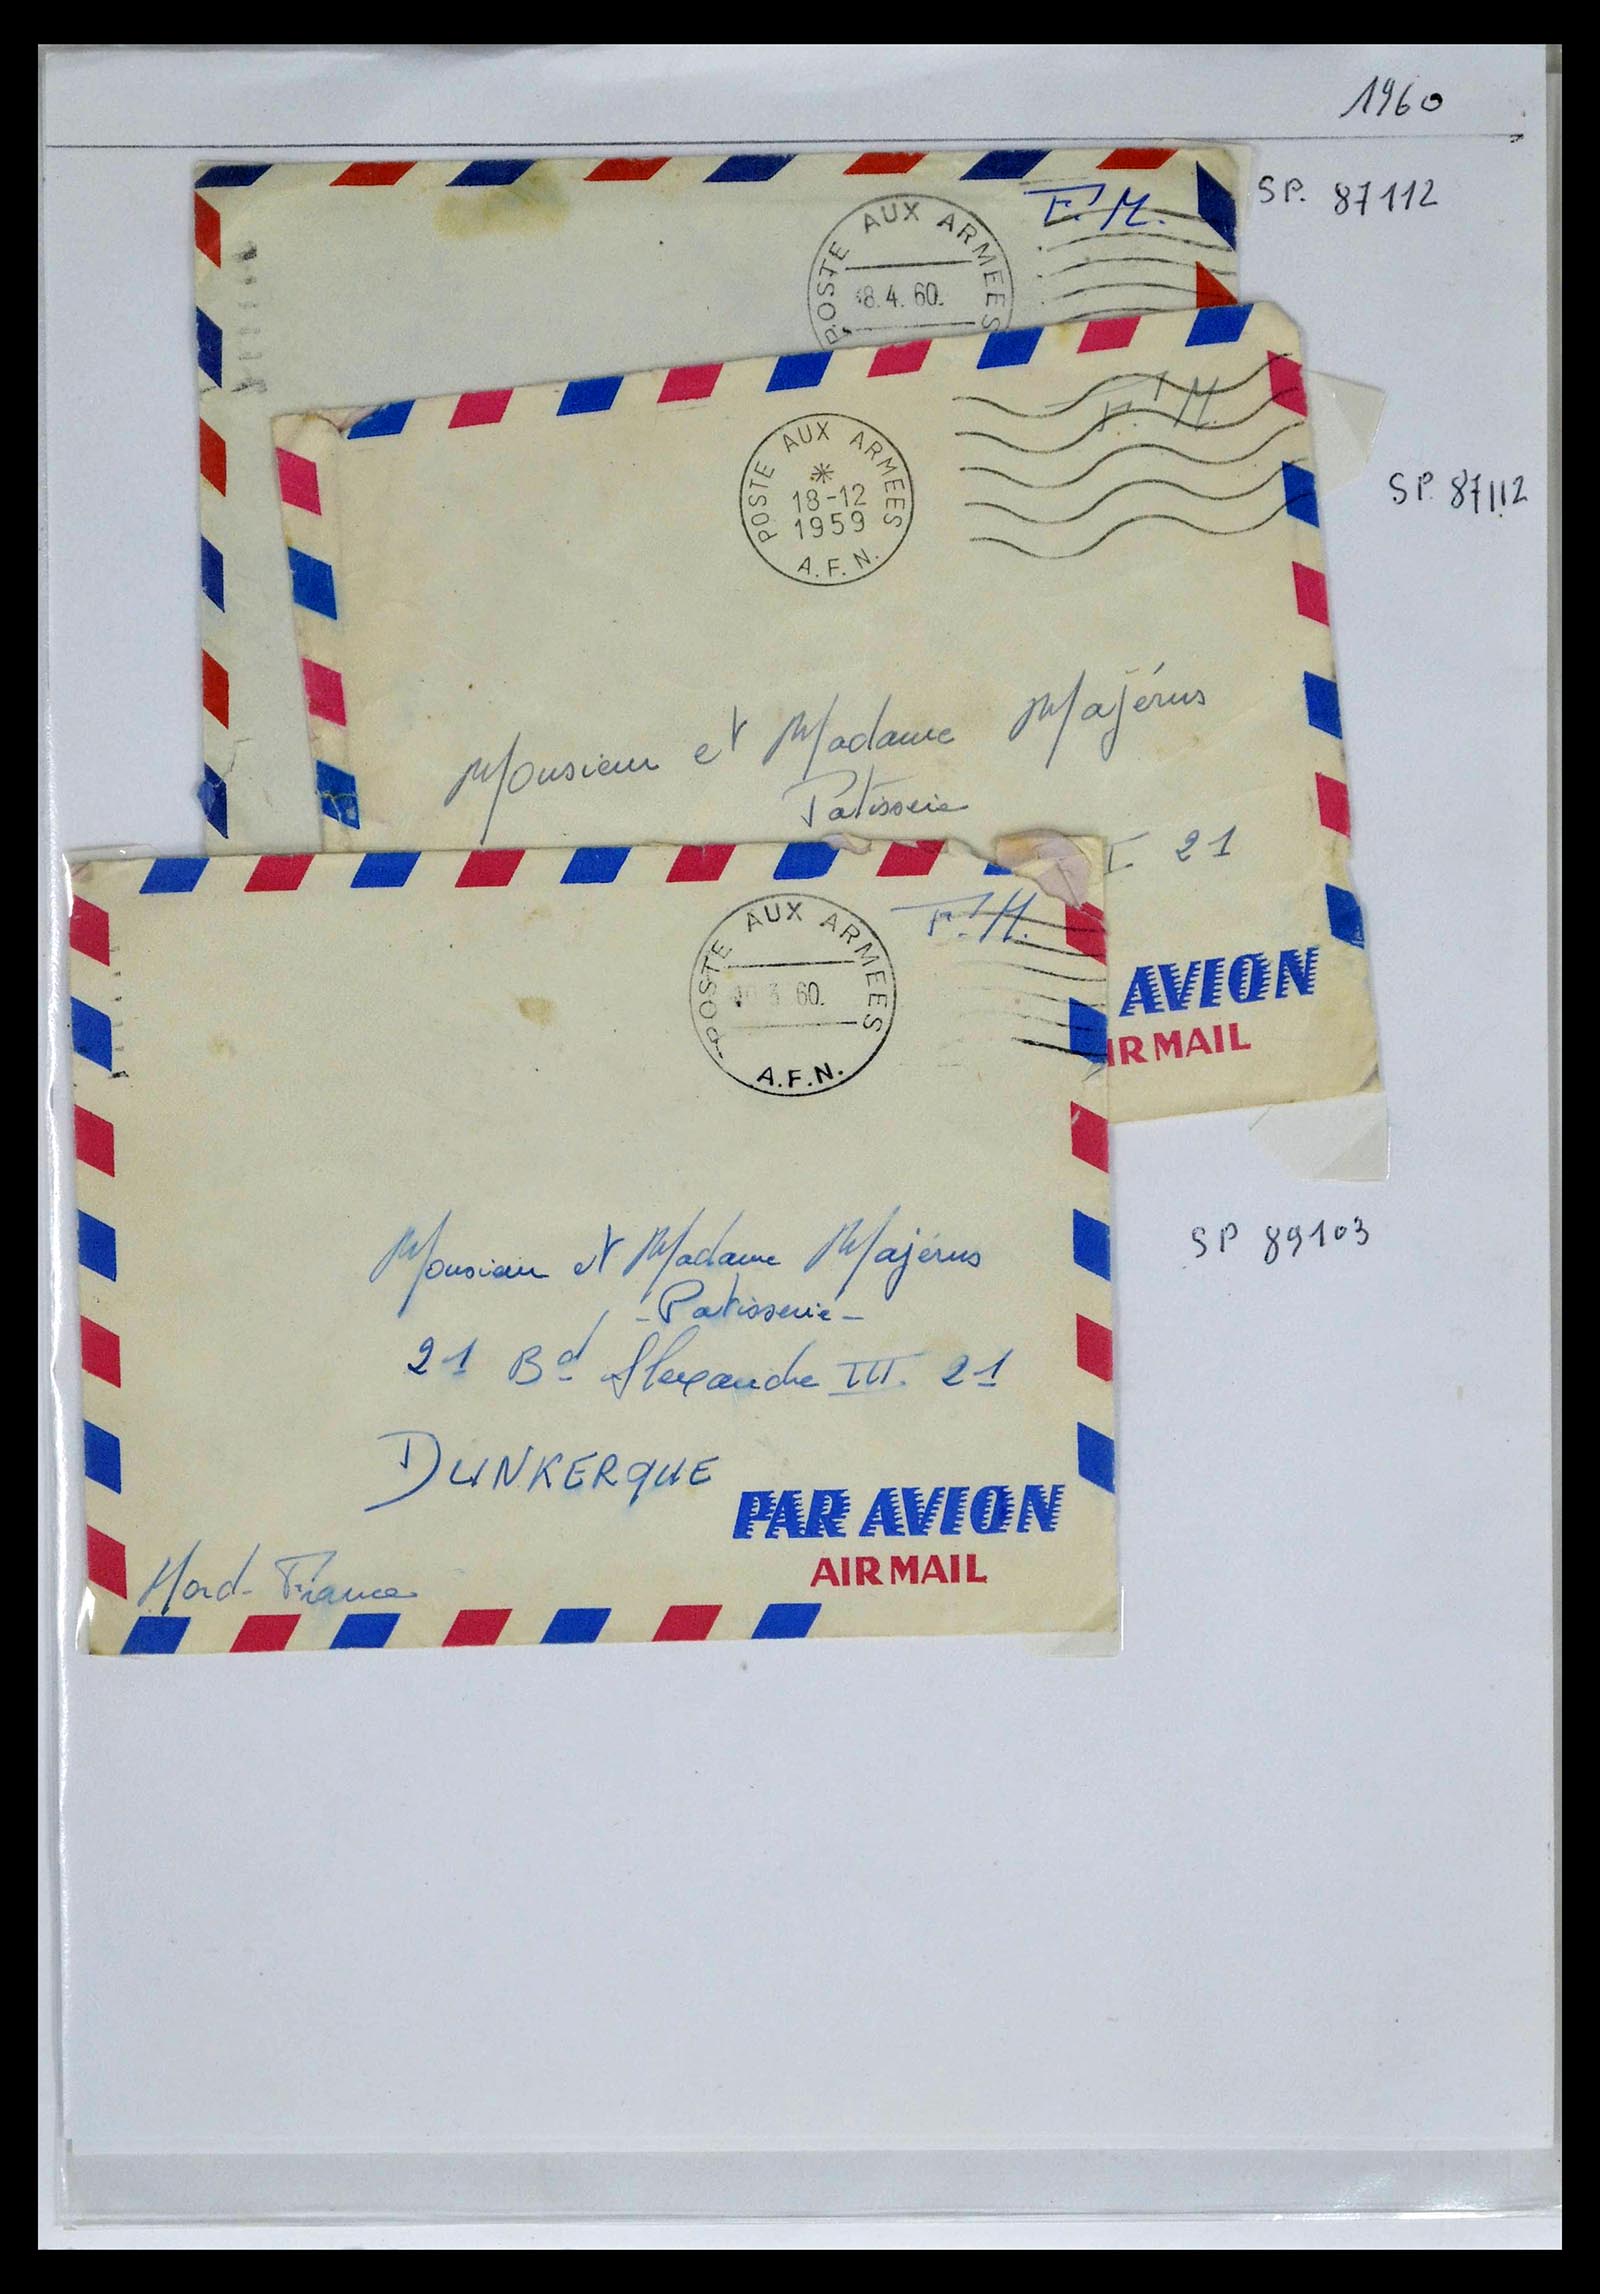 1960
SP. 87112
F.M.
POSTE AUX ARMEES
8.4.60.
F.M.
POSTE AUX ARMEES
18-12
1959
A.F.N.
SP. 87112
Monsieur et Madame Majérus
Patisserie
21
AVION
IR MAIL
F.M.
POSTE AUX ARMEES
3 60.
A.F.N.
SP 89103
Monsieur et Madame Majérus
-Patisserie-
21 Bd Alexandre III. 21
DUNKERQUE
PAR AVION
AIR MAIL
Nord-France